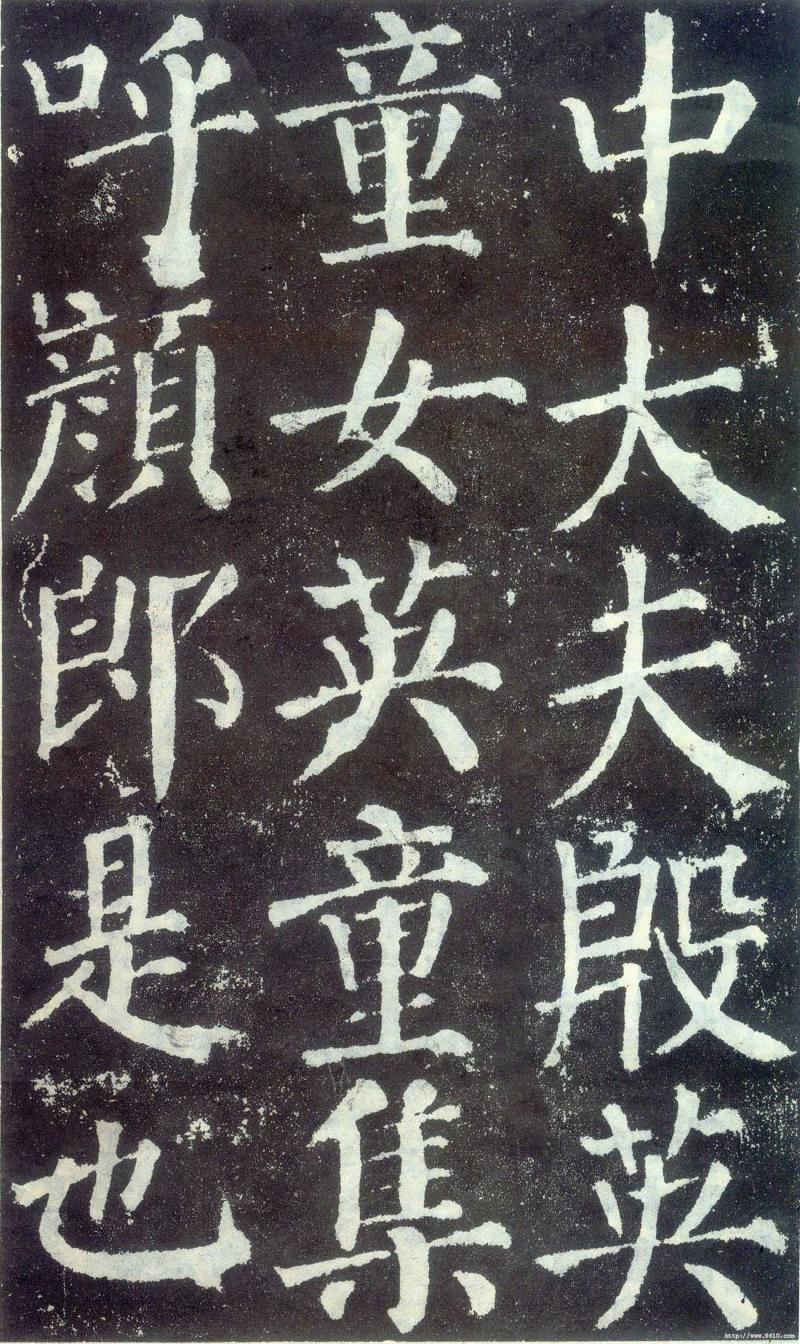 中大夫殷英
童女英童集
呼顔郎是也
http://www.9610.com